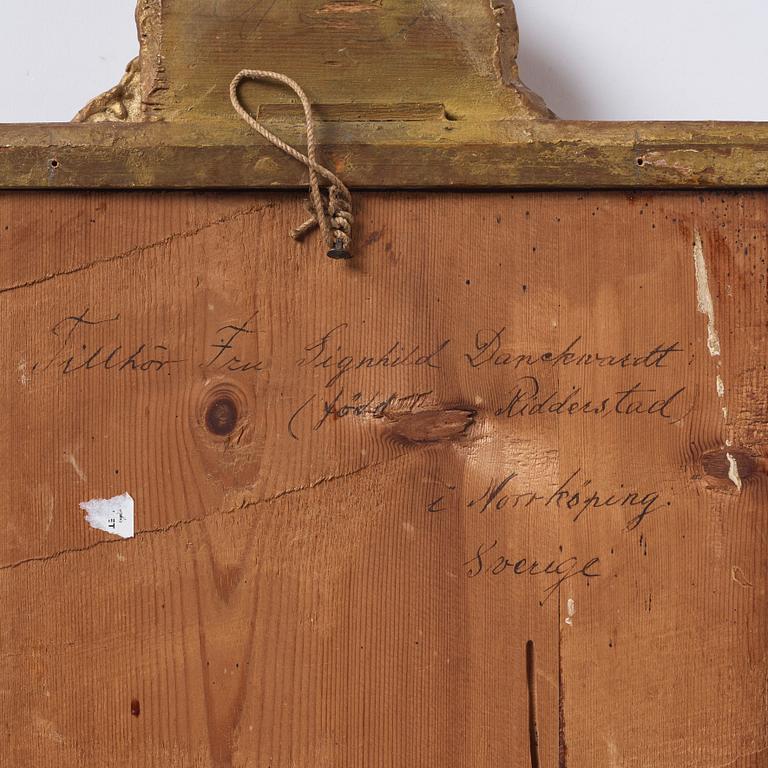 Tillhör Fru Signhild Danckwardt
(född Ridderstad)
i Norrköping.
Sverige